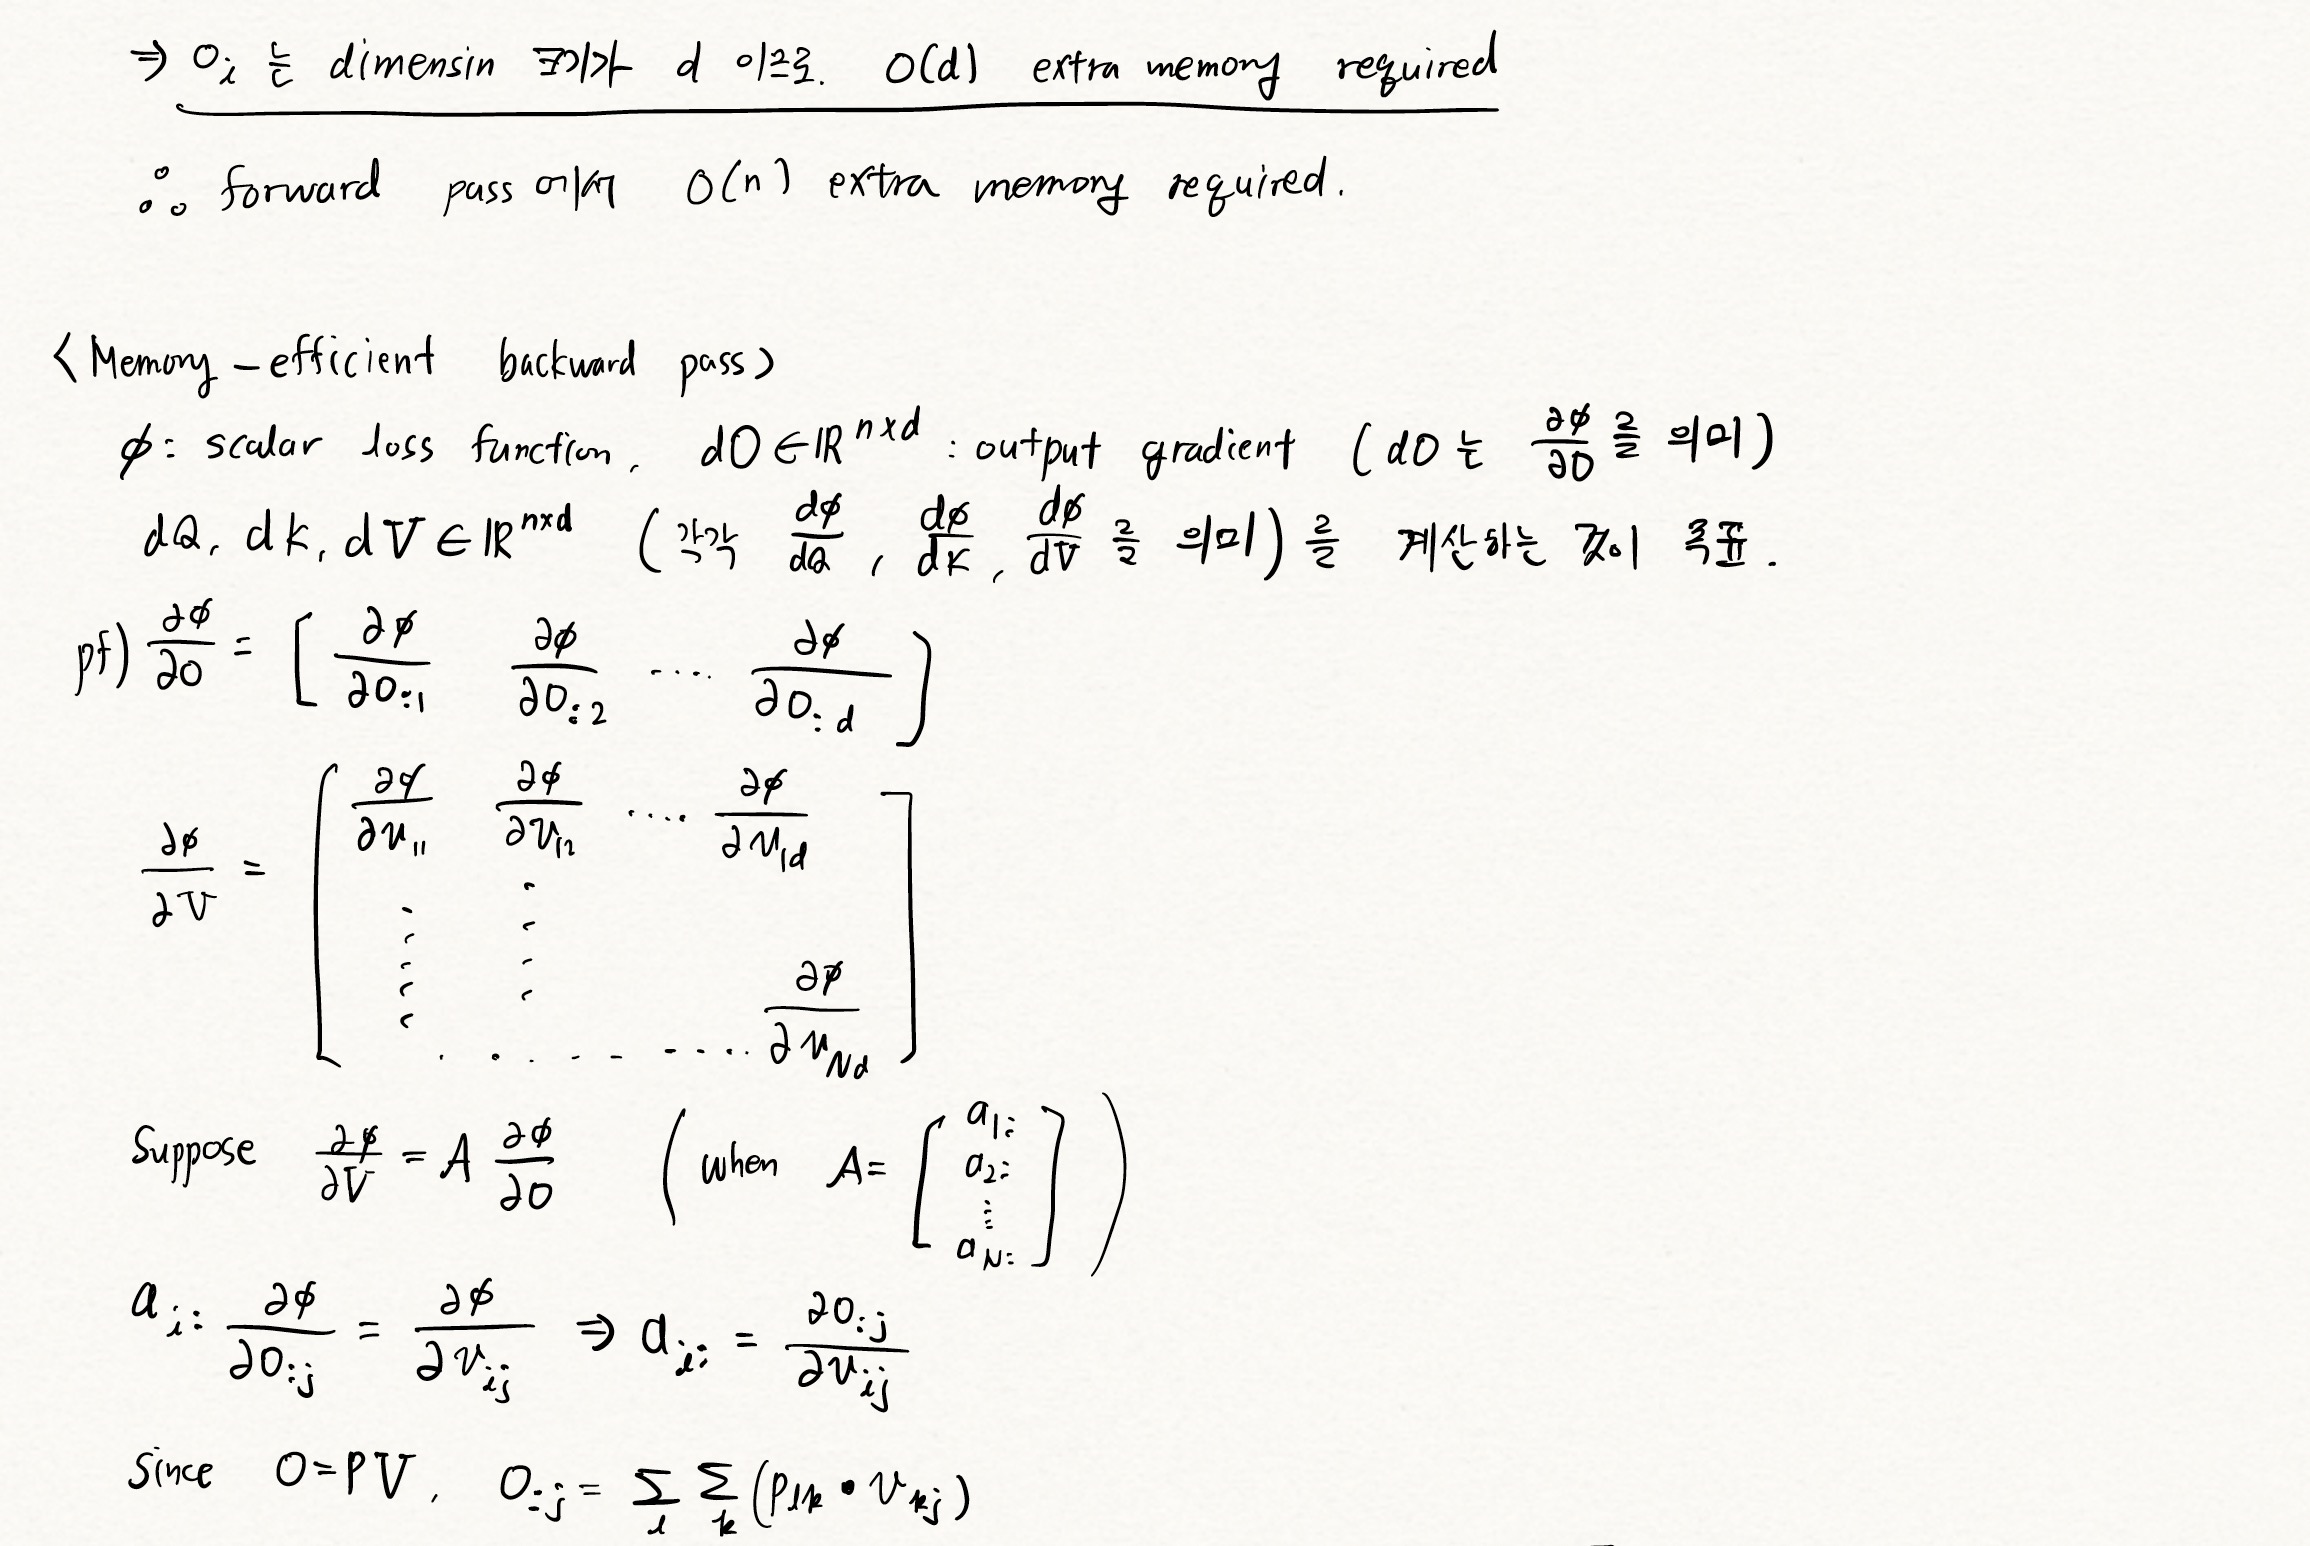 ⇒ O_i 는 dimensin 크기가 d 이므로. O(d) extra memory required
∴ forward pass 에서 O(n) extra memory required.
<Memory-efficient backward pass>
φ: scalar loss function, dO ∈ ℝ^{n×d} : output gradient (dO 는 ∂φ/∂O 를 의미)
dQ, dK, dV ∈ ℝ^{n×d} (각각 dφ/dQ, dφ/dK, dφ/dV 를 의미) 를 계산하는 것이 목표.
pf) ∂φ/∂O = [ ∂φ/∂O_{:1} ∂φ/∂O_{:2} .... ∂φ/∂O_{:d} ]
∂φ/∂V = [ ∂φ/∂v_{11} ∂φ/∂v_{12} .... ∂φ/∂v_{1d} ..... ∂φ/∂v_{Nd} ]
Suppose ∂φ/∂V = A ∂φ/∂O ( when A= [ a_{1:} a_{2:} ⋮ a_{N:} ] )
a_{i:} ∂φ/∂O_{:j} = ∂φ/∂v_{ij} ⇒ a_{i:} = ∂O_{:j}/∂v_{ij}
Since O=PV, O_{:j} = Σ_l Σ_k (P_{lk} • v_{kj})